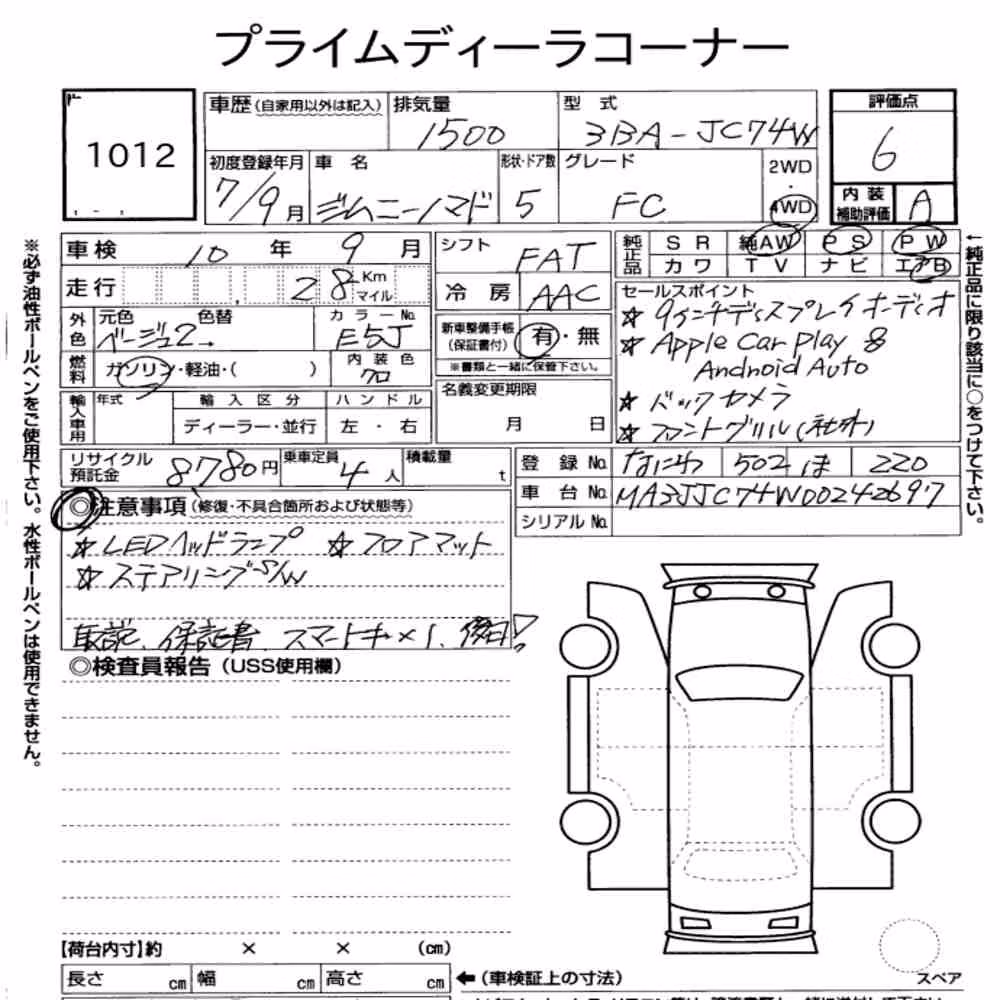 プライムディーラコーナー
1012
車歴(自家用以外は記入) 排気量 1500 型式 3BA-JC74W 評価点 6
初度登録年月 7/9月 車名 ジムニーノマド 形状・ドア数 5 グレード FC 2WD・4WD
内装補助評価 A
車検 10年9月 シフト FAT 純正品 SR 純AW PS PW
カワ TV ナビ エアB
走行 28 Km マイル 冷房 AAC
外色 元色 ベージュ2 色替 カラーNo. E5J
新車整備手帳(保証書付) 有・無
※書類と一緒に保管下さい。
燃料 ガソリン・軽油・( ) 内装色 クロ
名義変更期限 月 日
輸入車用 年式 輸入区分 ハンドル
ディーラー・並行 左・右
セールスポイント
☆ 9インチディスプレイオーディオ
☆ Apple Car Play &
Android Auto
☆ バックカメラ
☆ フロントグリル(社外)
リサイクル預託金 8780円 乗車定員 4人 積載量 t
登録No. なにわ 502 ほ 220
車台No. MA3JJC74W00242697
シリアルNo.
◎注意事項(修復・不具合箇所および状態等)
☆ LEDヘッドランプ ☆ フロアマット
☆ ステアリングS/W
取説、保証書、スマートキー×1、後日!
◎検査員報告(USS使用欄)
【荷台内寸】約 × × (cm)
長さ cm 幅 cm 高さ cm ←(車検証上の寸法)
スペア
※必ず油性ボールペンをご使用下さい。水性ボールペンは使用できません。
←純正品に限り該当に○をつけて下さい。